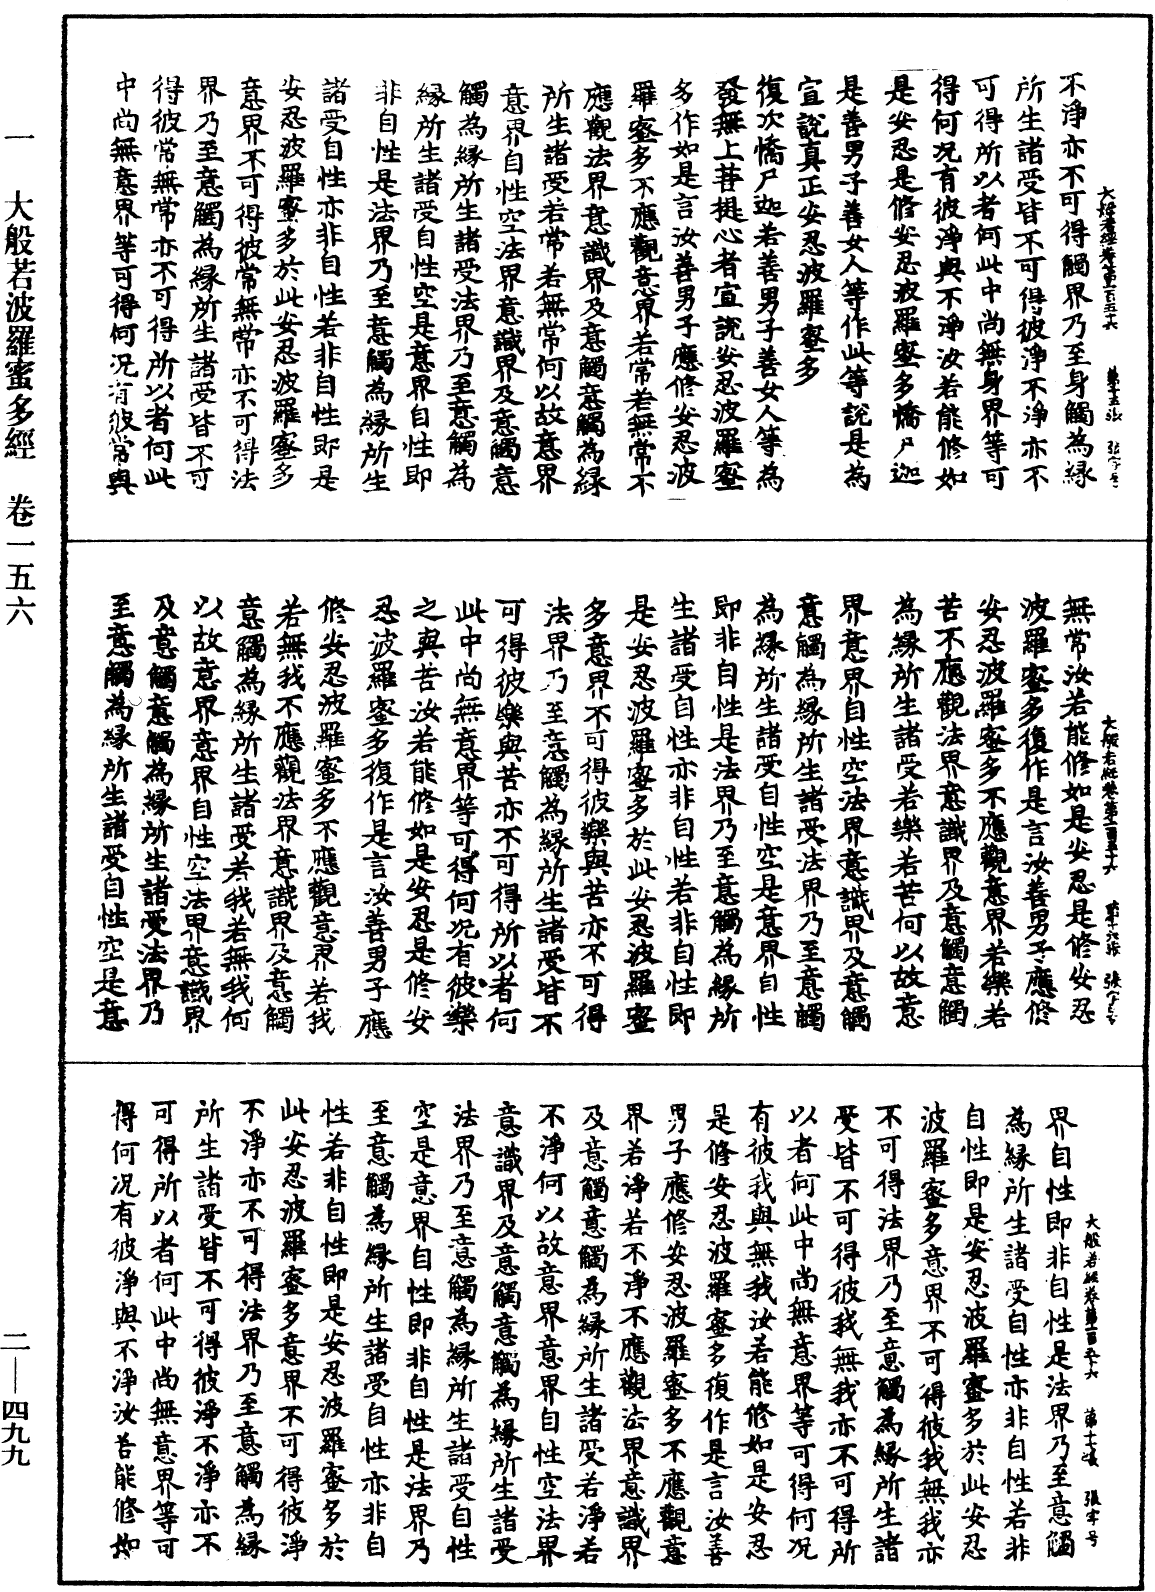 大般若經卷第一百五十六　第十五張　張字号
不淨亦不可得觸界乃至身觸為緣
所生諸受皆不可得彼淨不淨亦不
可得所以者何此中尚無身界等可
得何况有彼淨與不淨汝若能修如
是安忍是修安忍波羅蜜多憍尸迦
是善男子善女人等作此等說是為
宣說真正安忍波羅蜜多
復次憍尸迦若善男子善女人等為
發無上菩提心者宣說安忍波羅蜜
多作如是言汝善男子應修安忍波
羅蜜多不應觀意界若常若無常不
應觀法界意識界及意觸意觸為緣
所生諸受若常若無常何以故意界
意界自性空法界意識界及意觸意
觸為緣所生諸受法界乃至意觸為
緣所生諸受自性空是意界自性即
非自性是法界乃至意觸為緣所生
諸受自性亦非自性若非自性即是
安忍波羅蜜多於此安忍波羅蜜多
意界不可得彼常無常亦不可得法
界乃至意觸為緣所生諸受皆不可
得彼常無常亦不可得所以者何此
中尚無意界等可得何况有彼常與
大般若經卷第一百五十六　第十六張　張字号
無常汝若能修如是安忍是修安忍
波羅蜜多復作是言汝善男子應修
安忍波羅蜜多不應觀意界若樂若
苦不應觀法界意識界及意觸意觸
為緣所生諸受若樂若苦何以故意
界意界自性空法界意識界及意觸
意觸為緣所生諸受法界乃至意觸
為緣所生諸受自性空是意界自性
即非自性是法界乃至意觸為緣所
生諸受自性亦非自性若非自性即
是安忍波羅蜜多於此安忍波羅蜜
多意界不可得彼樂與苦亦不可得
法界乃至意觸為緣所生諸受皆不
可得彼樂與苦亦不可得所以者何
此中尚無意界等可得何况有彼樂
之與苦汝若能修如是安忍是修安
忍波羅蜜多復作是言汝善男子應
修安忍波羅蜜多不應觀意界若我
若無我不應觀法界意識界及意觸
意觸為緣所生諸受若我若無我何
以故意界意界自性空法界意識界
及意觸意觸為緣所生諸受法界乃
至意觸為緣所生諸受自性空是意
大般若經卷第一百五十六　第十七張　張字号
界自性即非自性是法界乃至意觸
為緣所生諸受自性亦非自性若非
自性即是安忍波羅蜜多於此安忍
波羅蜜多意界不可得彼我無我亦
不可得法界乃至意觸為緣所生諸
受皆不可得彼我無我亦不可得所
以者何此中尚無意界等可得何况
有彼我與無我汝若能修如是安忍
是修安忍波羅蜜多復作是言汝善
男子應修安忍波羅蜜多不應觀意
界若淨若不淨不應觀法界意識界
及意觸意觸為緣所生諸受若淨若
不淨何以故意界意界自性空法界
意識界及意觸意觸為緣所生諸受
法界乃至意觸為緣所生諸受自性
空是意界自性即非自性是法界乃
至意觸為緣所生諸受自性亦非自
性若非自性即是安忍波羅蜜多於
此安忍波羅蜜多意界不可得彼淨
不淨亦不可得法界乃至意觸為緣
所生諸受皆不可得彼淨不淨亦不
可得所以者何此中尚無意界等可
得何况有彼淨與不淨汝若能修如
一　大般若波羅蜜多經　卷一五六
二—四九九